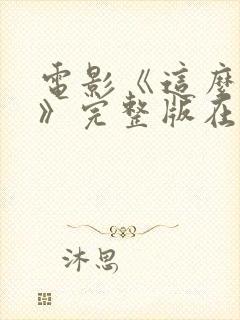 電影《這麼
》完整版在
沐思